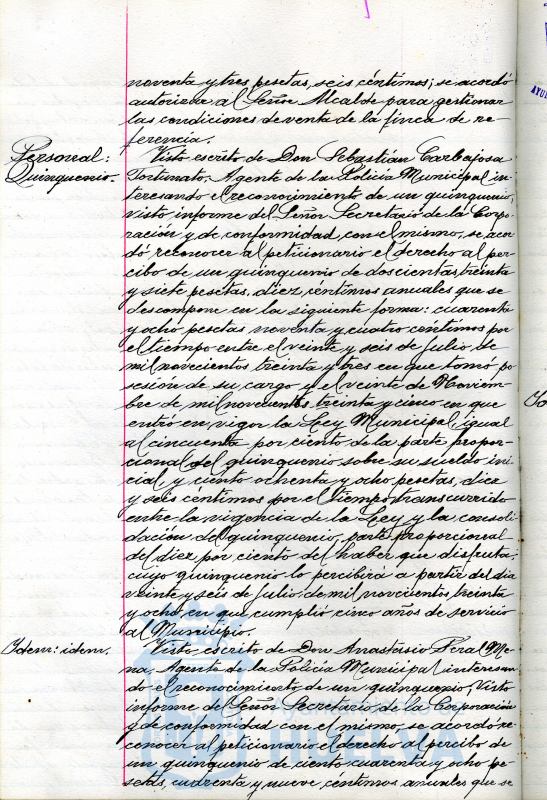 noventa y tres pesetas, seis céntimos; se acordó
autorizar al Señor Alcalde para gestionar
las condiciones de venta de la finca de re-
ferencia.
Personal:
Quinquenio.
Visto escrito de Don Sebastián Carbajosa
Fortunato, Agente de la Policía Municipal in-
teresando el reconocimiento de un quinquenio,
visto informe del Señor Secretario de la Corpo-
ración y de conformidad con el mismo, se acor-
dó reconocer al peticionario el derecho al per-
cibo de un quinquenio de doscientas treinta
y siete pesetas, diez céntimos anuales que se
descompone en la siguiente forma: cuarenta
y ocho pesetas noventa y cuatro céntimos por
el tiempo entre el veinte y seis de Julio de
mil novecientos treinta y tres en que tomó po-
sesión de su cargo y el veinte de Noviem-
bre de mil novecientos treinta y cinco en que
entró en vigor la Ley Municipal, igual
al cincuenta por ciento de la parte propor-
cional del quinquenio sobre su sueldo ini-
cial, y ciento ochenta y ocho pesetas, diez
y seis céntimos por el tiempo transcurrido
entre la vigencia de la Ley y la consoli-
dación del quinquenio, parte proporcional
del diez por ciento del haber que disfruta;
cuyo quinquenio lo percibirá a partir del dia
veinte y seis de Julio de mil novecientos treinta
y ocho en que cumplió cinco años de servicio
al Municipio.
Idem: idem.
Visto escrito de Don Anastasio Peral Me-
na, Agente de la Policía Municipal interesan-
do el reconocimiento de un quinquenio, Visto
informe del Señor Secretario de la Corporación
y de conformidad con el mismo, se acordó re-
conocer al peticionario el derecho al percibo de
un quinquenio de ciento cuarenta y ocho pe-
setas, cuarenta y nueve céntimos anuales que se
HUELVA